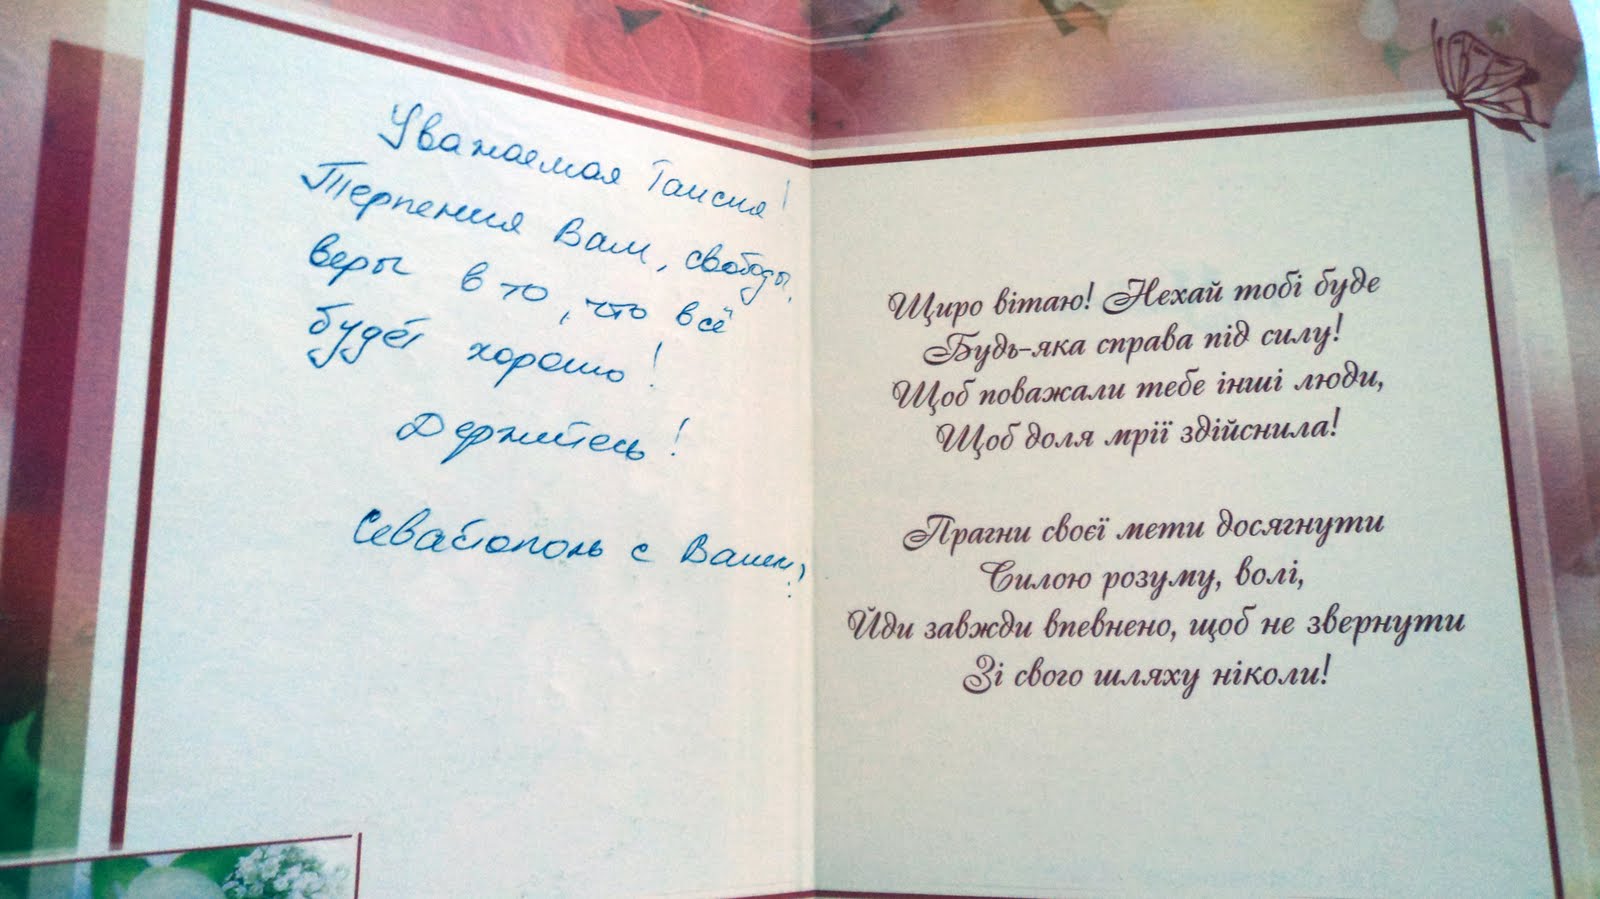 Уважаемая Таисия!
Терпения Вам, свободы,
веры в то, что всё
будет хорошо!
Держитесь!
Севастополь с Вами!
Щиро вітаю! Нехай тобі буде
Будь-яка справа під силу!
Щоб поважали тебе інші люди,
Щоб доля мрії здійснила!
Прагни своєї мети досягнути
Силою розуму, волі,
Йди завжди впевнено, щоб не звернути
Зі свого шляху ніколи!